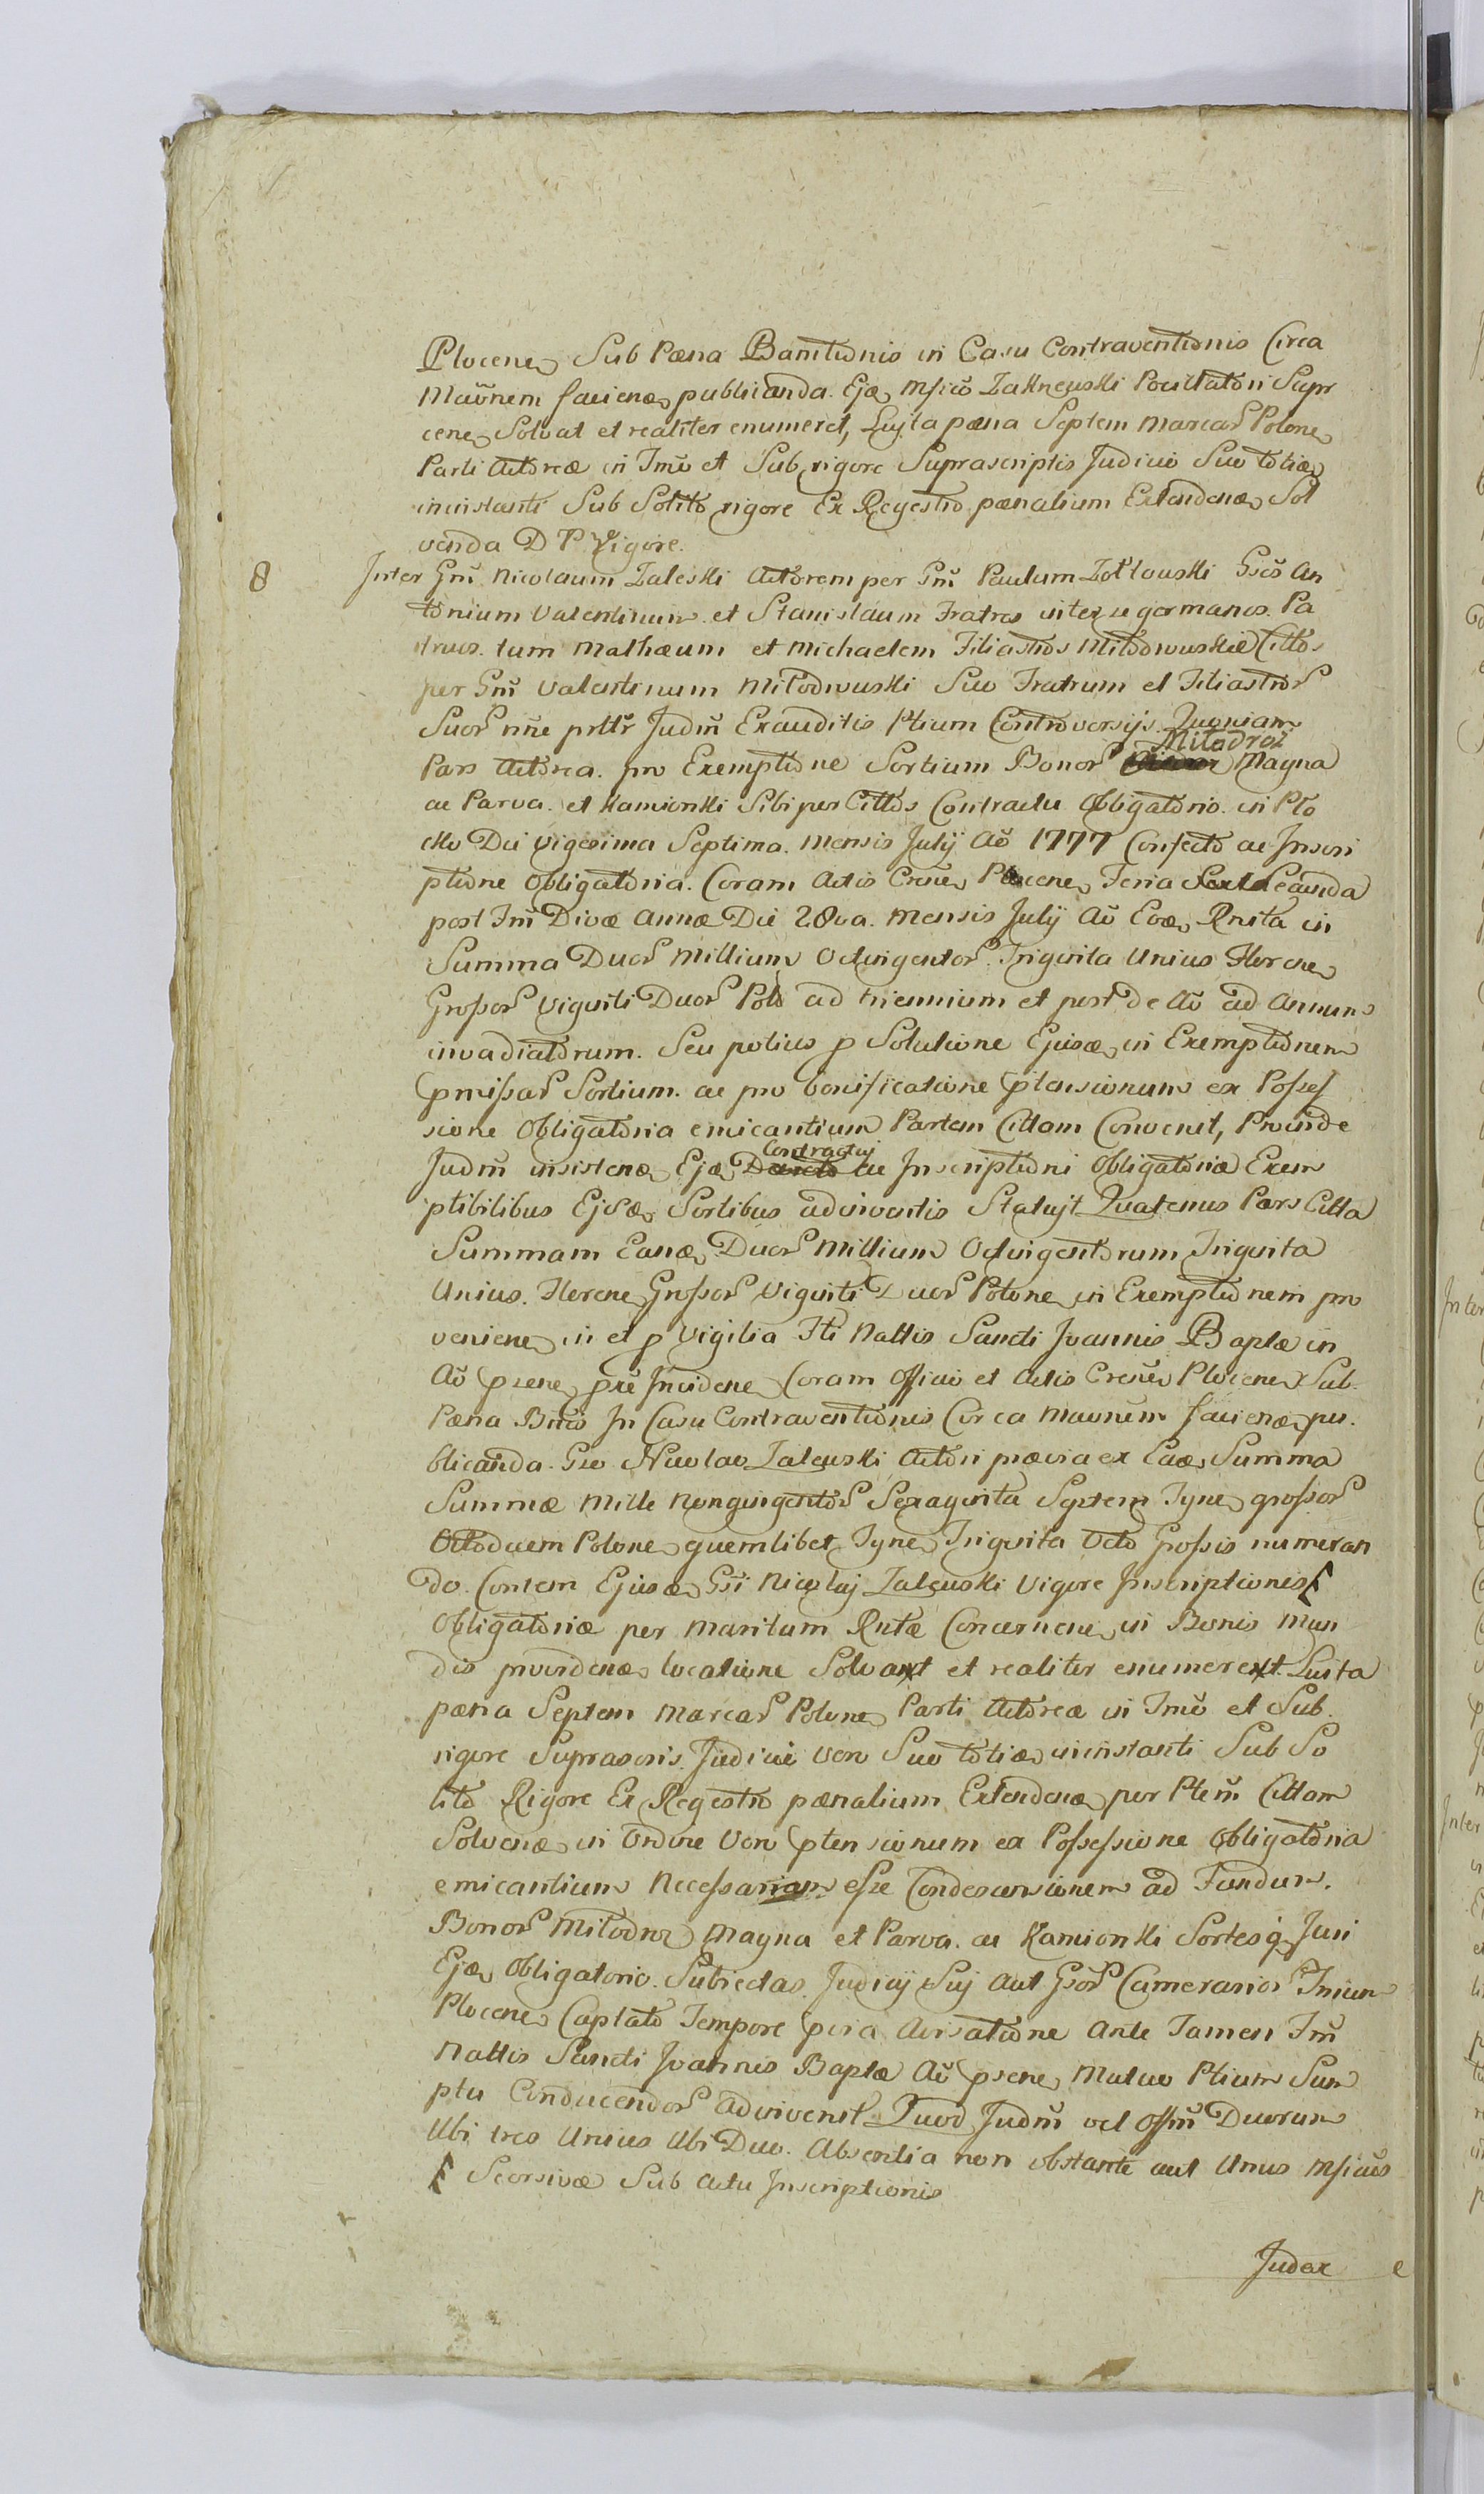 Plocene Sub Pœna Banitionis in Casu Contraventionis Circa
Maũnem facienœ publicanda. Ejœ Msico Zakrzewski Pocillatori Supr
cene Solvat et realiter enumeret, Lujta pœna Septem Marcar Polone
Parti Actoreœ in Tmo et Sub rigore Suprascriptis Judicio Suo totiœ
ininstanti Sub Solito rigore Ex Regestro pœnalium Extendenœ Sol
venda D P Vigore.
8 Inter Gm̃ Nicolaum Zaleski Actorem per Gm̃ Paulum Zołtowski Gsos An
tonium Valentinum et Stanislaum Fratres inter se germanos. Pa
truos. tum Mathœum et Michaelem Filiastros Miłodrowskie Cittos
per Gm̃ Valentinum Miłodrowski Suo Fratrum et Filiastror
Suor nñe prttr Judm̃ Exauditis Ptium Controversijs. Quoniam
Miłodroż
Pars Actorea. pro Exemptione Sortium Bonor Magna
ac Parva. et Kamionki Sibi per Cittos Contractu Obligatorio. in Pło
cko Die Vigesima Septima. Mensis Julij Aõ 1777 Confecto ac Inscri
ptione Obligatoria. Coram Actis Crenẽ Plocene Feria Secunda
post Fm̃ Divœ Annœ Die 28va. Mensis Julij Aõ Eoœ Rnita in
Summa Duor Millium Octingentor Triginta Unius Florene
Grossor Viginti Duor Polo ad triennium et post de Aõ ad Annum
invadiatorum. Seu potius p Solutione Ejusœ in Exemptionem
pmissar Sortium. ac pro bonificatione ptensionum ex Posses
sione Obligatoria emicantium Partem Cittam Convenit, Proinde
Contractuj
Judm̃ insistenœ Ejœ ac Inscriptioni Obligatoriœ Exem
ptibilibus Ejsœ Sortibus adinventis Statujt Quatenus Pars Citta
Summam Eanœ Duor Millium Octingentorum Triginta
Unius. Florene Grossor Viginti Duor Polone in Exemptionem pro
veniene in et p Vigilia Fti Nattis Sancti Joannis Baptœ in
Aõ psene pxẽ Incidene Coram Officio et Actis Crenẽ Plocene Sub
Pœna Bnis In Casu Contraventionis Circa Maunẽm facienœ pu.
blicanda. Gso Nicolao Zalewski Actori prœvia ex Eaœ Summa
Summœ Mille Nongingentor Sexaginta Septem Tyne grossor
Octodecem Polone quemlibet Tyne Triginta Octo Grossis numeran
do. Contem Ejusœ Gsi Nicolaj Zalewski Vigore Inscriptionis
Obligatoriœ per Maritum Rntœ Concernene in Bonis Mun
dis providenœ locatione Solvat et realiter enumeret. Luita
pœna Septem Marcar Polone Parti Actoreœ in Tmo et Sub
rigore Suprascris. Judicio vero Suo totiœ ininstanti Sub So
lito Rigore Ex Regestro pœnalium Extendenœ per Ptem̃ Cittam
Solvenœ in Ordine Vero ptensionum ex Possessione Obligatoria
emicantium Necessariam esse Condescensionem ad Fundum.
Bonor Miłodroż Magna et Parva. ac Kamionki Sortesq Juri
Ejœ Obligatorio. Subiectas. Judicij Suj aut Gsor Camerarior Trium
Plocene Captato Tempore pvia Avisatione Ante Tamen Fm̃
Nattis Sancti Joannis Baptœ Aõ psene Mutuo Ptium Sum
ptu Conducendor adinvenit Quod Judm̃ vel Offm̃ Duorum
Ubi tres Unius Ubi Duo. Absentia non obstante aut Unus Msicus
Seorsivœ Sub Actu Inscriptionis
Judex